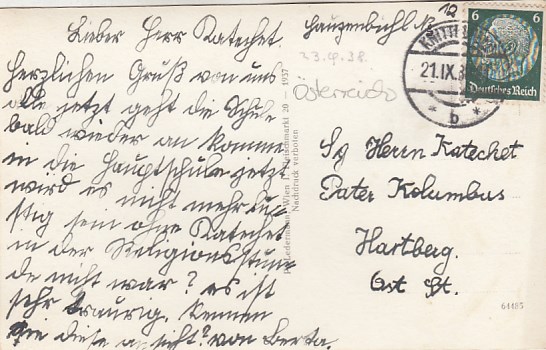 Lieber Herr Katechet.
Herzlichen Gruß von uns
alle jetzt geht die Schule
bald wieder an komme
in die Hauptschule jetzt
wird es nicht mehr lu-
stig sein ohne Katechet
in der Religionsstun
de nicht war? es ist
sehr traurig. Kennen
sie diese ansicht? von Berta.
Hauzenbichl
12
23.9.38.
Österreich
P. Ledermann, Wien I, Fleischmarkt 20 — 1937
Nachdruck verboten
21.IX.3
b
6 6
Deutsches Reich
Herrn Katechet
Pater Kolumbus
Hartberg.
Ost St.
64485